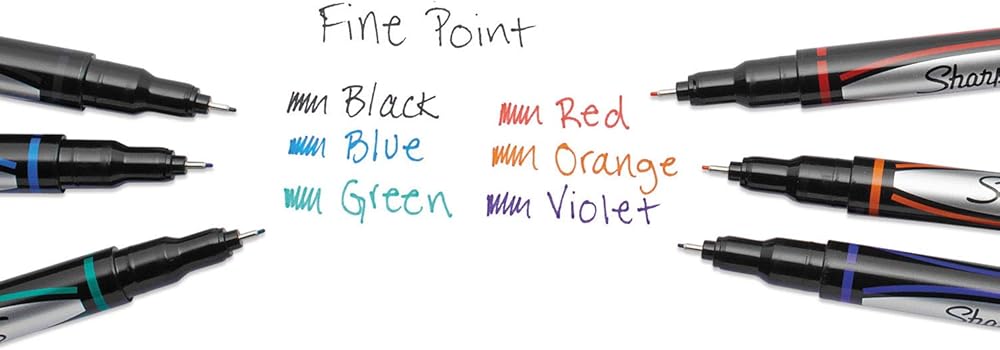 Fine Point
Black
Blue
Green
Red
Orange
Violet
Sharp
S
Sharp